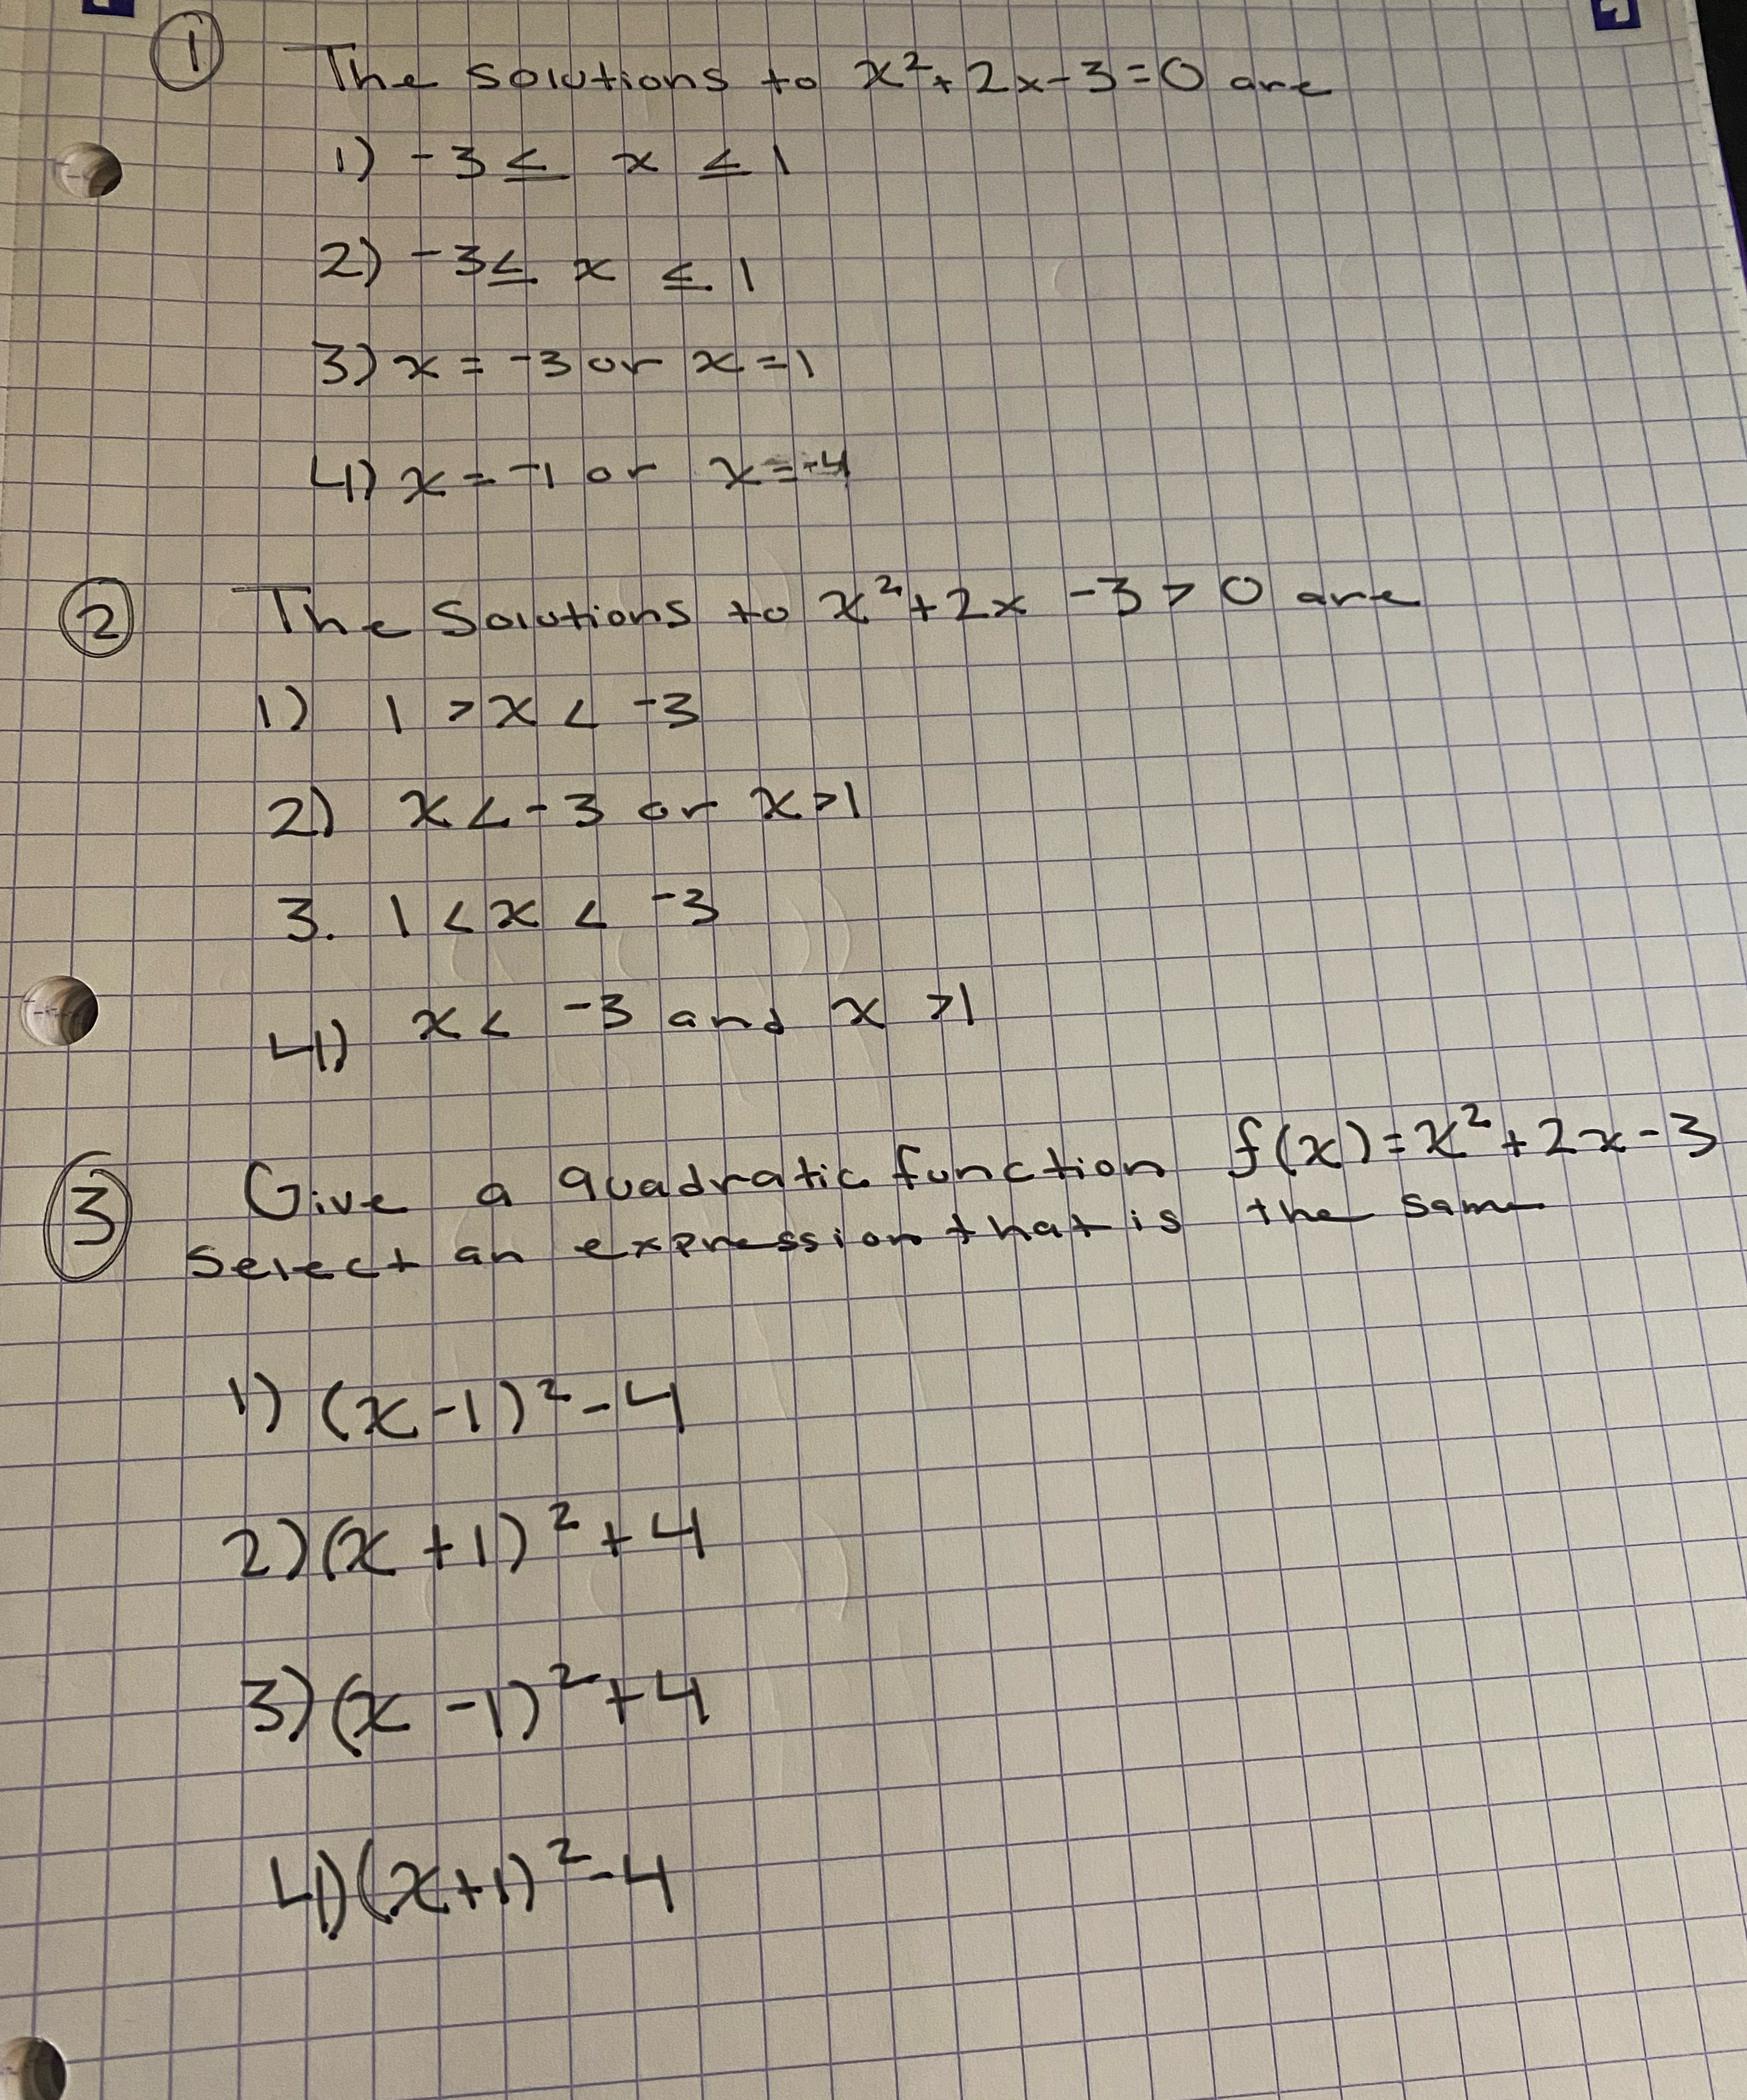 ① The solutions to x²+2x-3=0 are
1) -3 ≤ x ≤ 1
2) -3 ≤ x ≤ 1
3) x = -3 or x = 1
4) x = -1 or x = -4
② The Solutions to x²+2x -3 > 0 are
1) 1 > x < -3
2) x < -3 or x > 1
3. 1 < x < -3
4) x < -3 and x > 1
③ Give a quadratic function f(x) = x²+2x-3
Select an expression that is the same
1) (x-1)²-4
2) (x+1)²+4
3) (x-1)²+4
4) (x+1)²-4